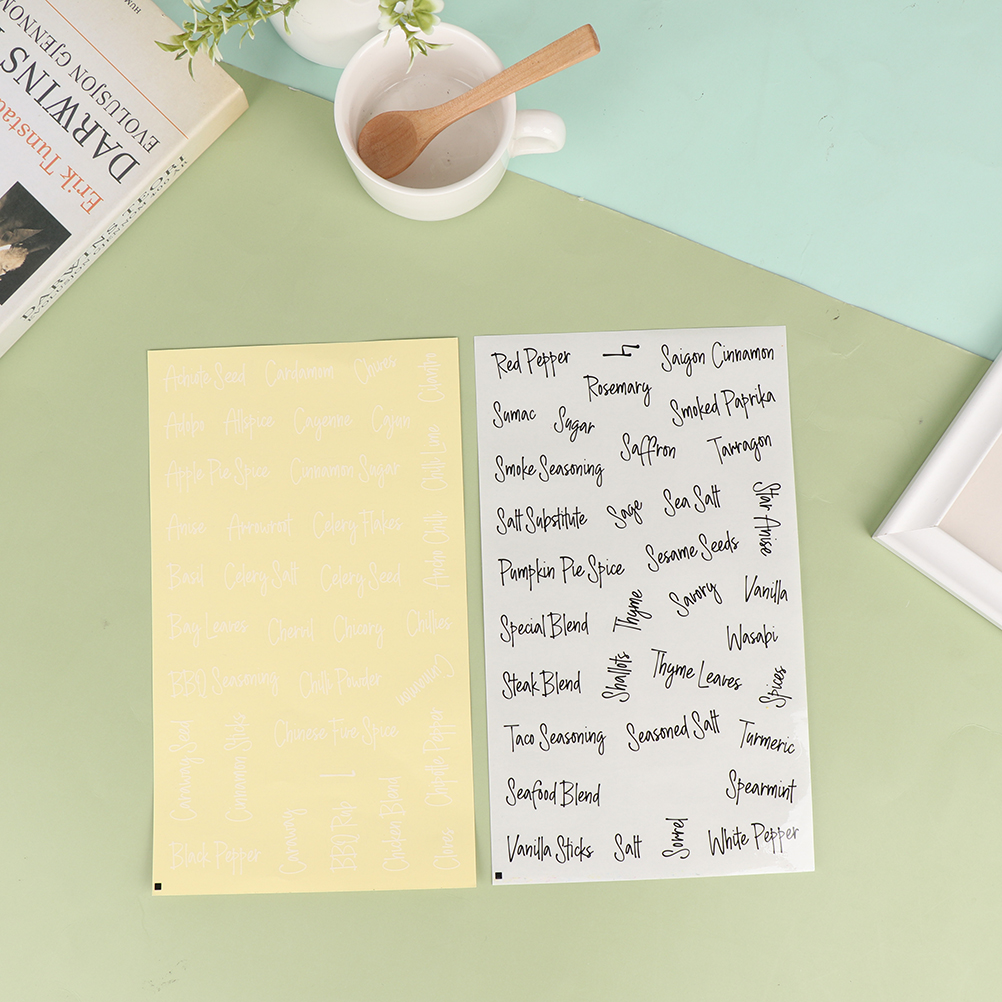 HUM
DARWINS
EVOLUSJON GJENNOM
Erik Tunstad
Achiote Seed
Cardamom
Chives
Cilantro
Adobo
Allspice
Cayenne
Cajun
Chili Lime
Apple Pie Spice
Cinnamon Sugar
Anise
Arrowroot
Celery Flakes
Ancho Chili
Basil
Celery Salt
Celery Seed
Bay Leaves
Chervil
Chicory
Chillies
BBQ Seasoning
Chili Powder
Cinnamon
Caraway Seed
Cinnamon Sticks
Chinese Five Spice
Chipotle Pepper
1
Black Pepper
Caraway
BBQ Rub
Chicken Blend
Cloves
Red Pepper
4
Saigon Cinnamon
Rosemary
Sumac
Sugar
Smoked Paprika
Saffron
Tarragon
Smoke Seasoning
Salt Substitute
Sage
Sea Salt
Star Anise
Pumpkin Pie Spice
Sesame Seeds
Special Blend
Thyme
Savory
Vanilla
Wasabi
Steak Blend
Shallots
Thyme Leaves
Spices
Taco Seasoning
Seasoned Salt
Turmeric
Seafood Blend
Spearmint
Vanilla Sticks
Salt
Sorrel
White Pepper